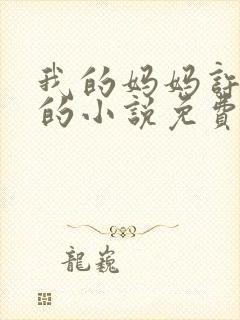 我的妈妈
的小说免費
龍巍